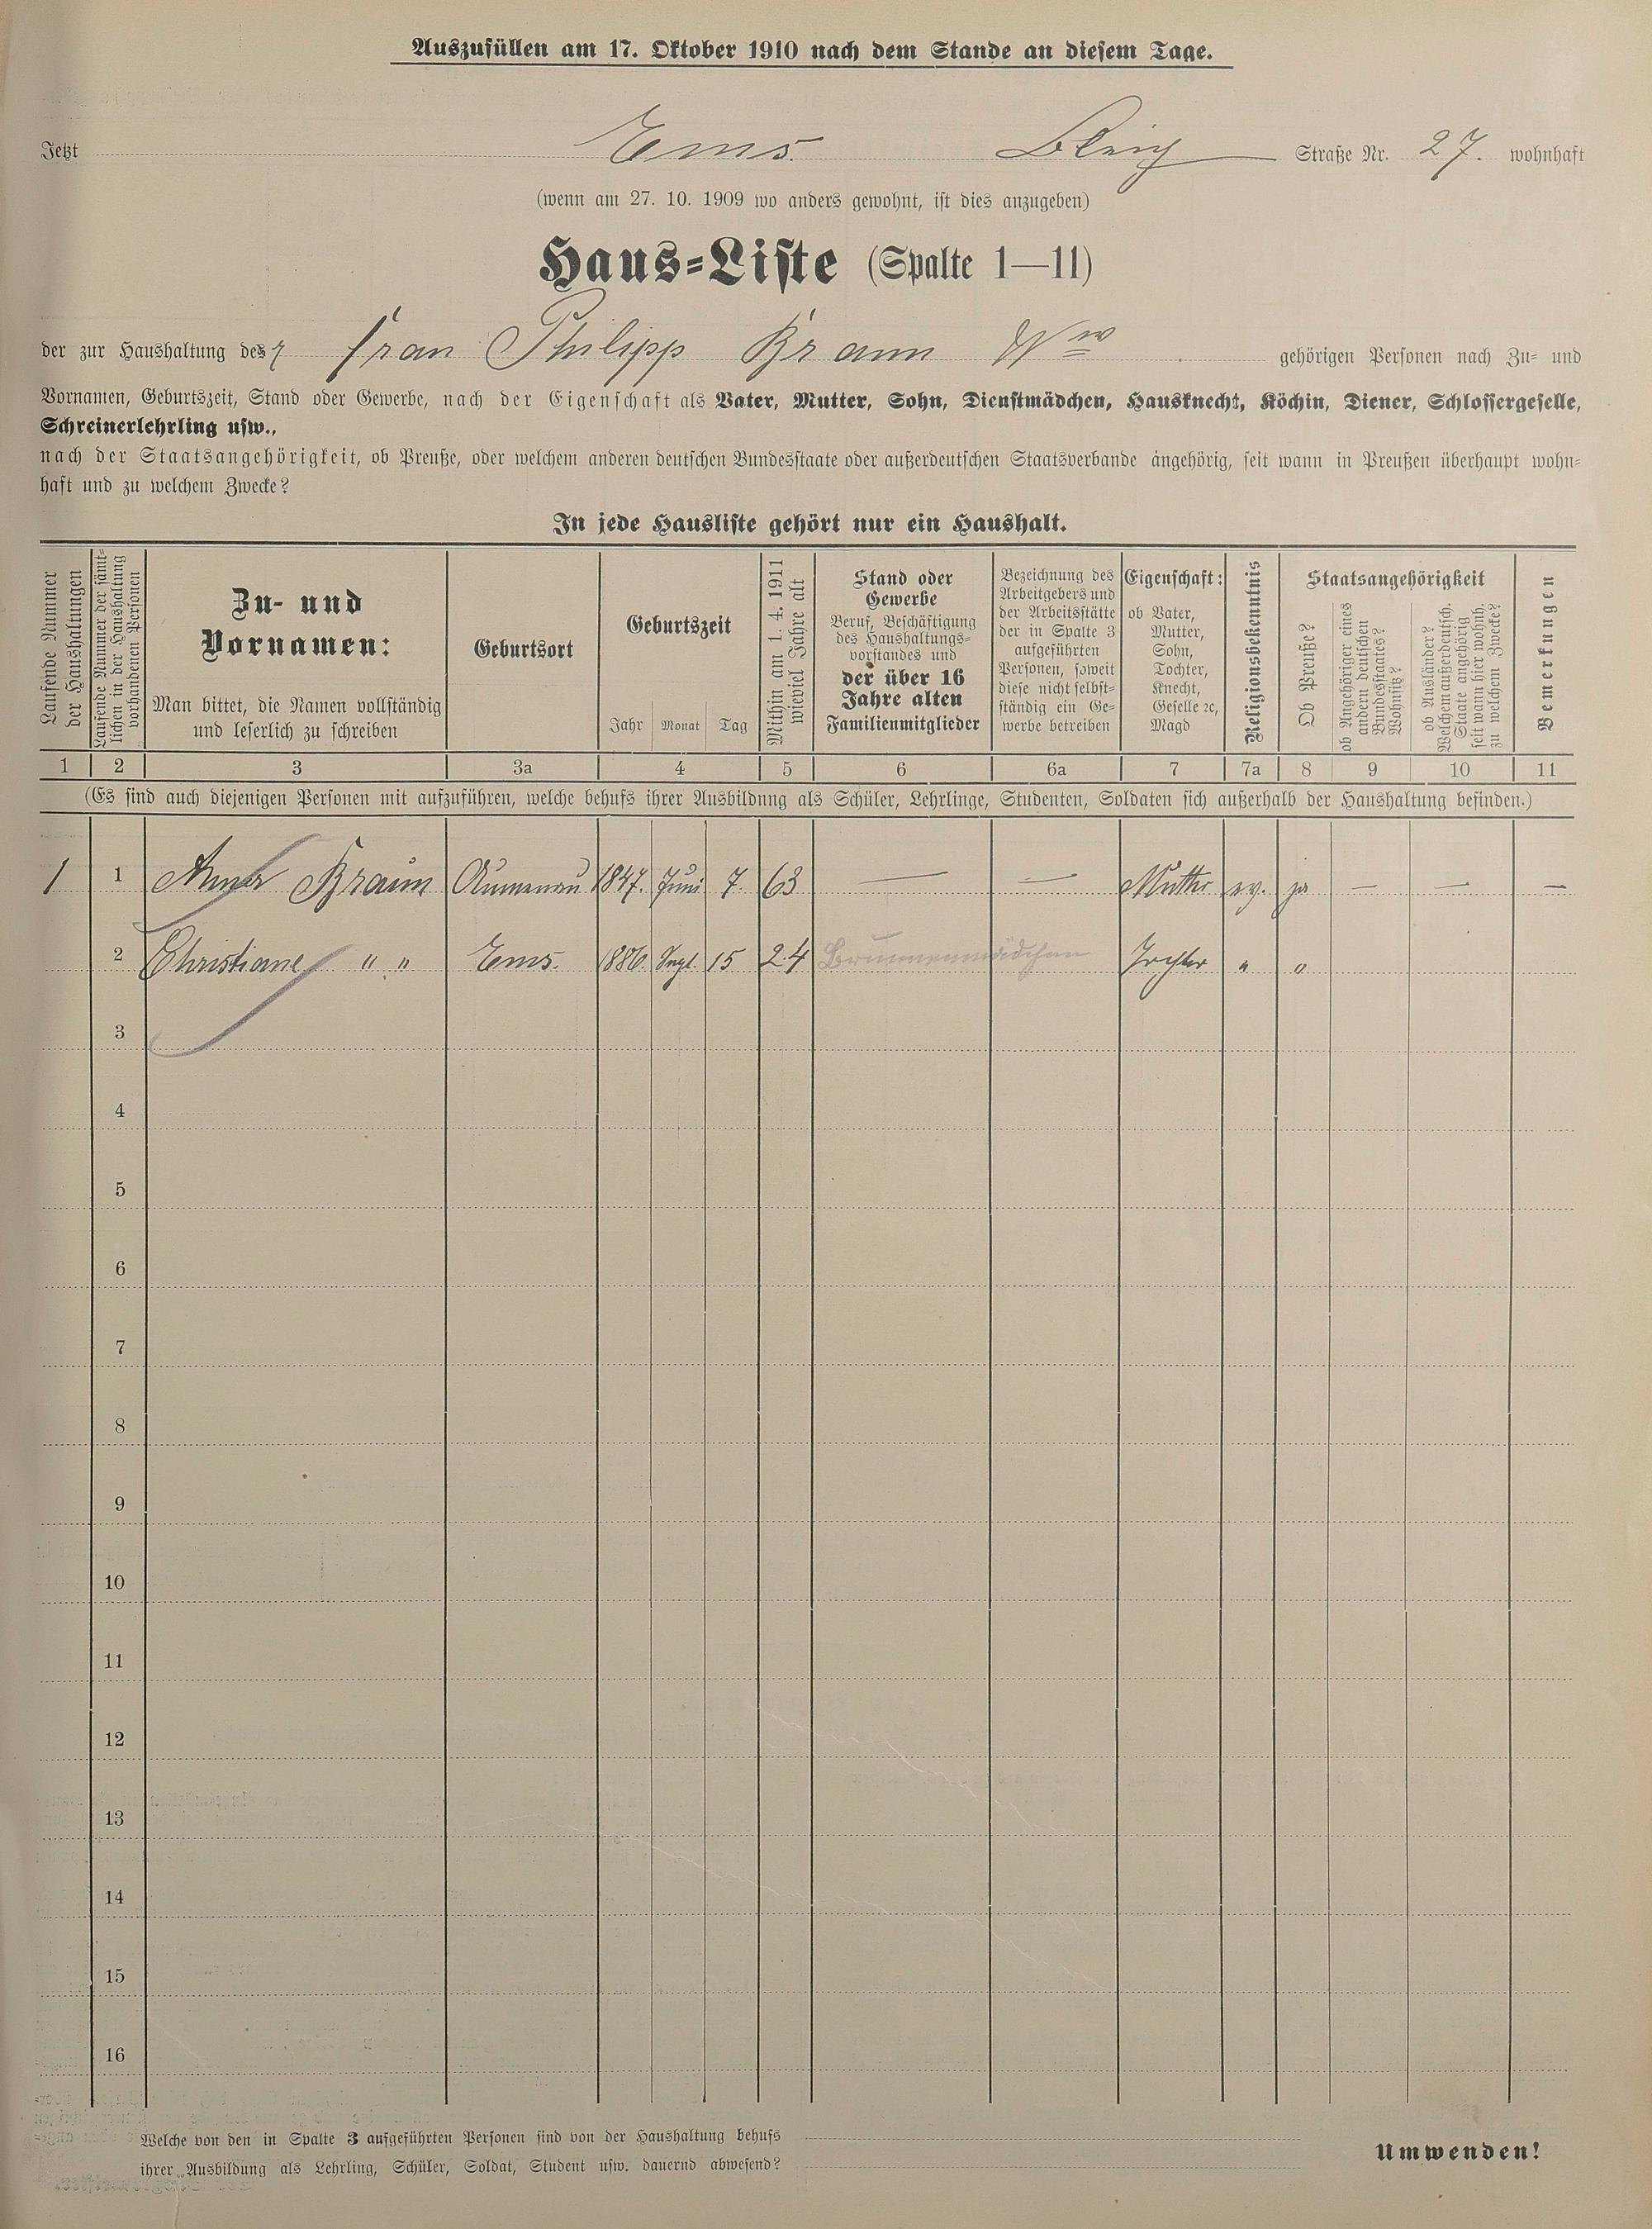 Auszufüllen am 17. Oktober 1910 nach dem Stande an diesem Tage.
Jetzt Ems. Straße Nr. 27. wohnhaft
(wenn am 27. 10. 1909 wo anders gewohnt, ist dies anzugeben)
Haus-Liste (Spalte 1—11)
der zur Haushaltung des r Frau Philipp Braun Ww gehörigen Personen nach Zu- und
Vornamen, Geburtszeit, Stand oder Gewerbe, nach der Eigenschaft als Vater, Mutter, Sohn, Dienstmädchen, Hausknecht, Köchin, Diener, Schlossergeselle,
Schreinerlehrling usw.,
nach der Staatsangehörigkeit, ob Preuße, oder welchem anderen deutschen Bundesstaate oder außerdeutschen Staatsverbande angehörig, seit wann in Preußen überhaupt wohn-
haft und zu welchem Zwecke?
In jede Hausliste gehört nur ein Haushalt.
Laufende Nummer
der Haushaltungen
Laufende Nummer der sämt-
lichen in der Haushaltung
vorhandenen Personen
Zu- und
Vornamen:
Man bittet, die Namen vollständig
und leserlich zu schreiben
Geburtsort
Geburtszeit
Jahr Monat Tag
Mithin am 1. 4. 1911
wieviel Jahre alt
Stand oder
Gewerbe
Beruf, Beschäftigung
des Haushaltungs-
vorstandes und
der über 16
Jahre alten
Familienmitglieder
Bezeichnung des
Arbeitgebers und
der Arbeitsstätte
der in Spalte 3
aufgeführten
Personen, soweit
diese nicht selbst-
ständig ein Ge-
werbe betreiben
Eigenschaft:
ob Vater,
Mutter,
Sohn,
Tochter,
Knecht,
Geselle ꝛc,
Magd
Religionsbekenntnis
Staatsangehörigkeit
Ob Preuße?
ob Angehöriger eines
andern deutschen
Bundesstaates?
Wohnsitz?
ob Ausländer?
Welchem außerdeutsch.
Staate angehörig
seit wann hier wohnh.
zu welchem Zwecke?
Bemerkungen
1 2 3 3a 4 5 6 6a 7 7a 8 9 10 11
(Es sind auch diejenigen Personen mit aufzuführen, welche behufs ihrer Ausbildung als Schüler, Lehrlinge, Studenten, Soldaten sich außerhalb der Haushaltung befinden.)
1 1 Anna Braun Aumenau 1847. Juni 7 63 — — Mutter ev. ja — — —
2 Christiane " " Ems. 1886. 15 24 Brunnenmädchen Tochter " "
3
4
5
6
7
8
9
10
11
12
13
14
15
16
Welche von den in Spalte 3 aufgeführten Personen sind von der Haushaltung behufs
ihrer Ausbildung als Lehrling, Schüler, Soldat, Student usw. dauernd abwesend?
Umwenden!